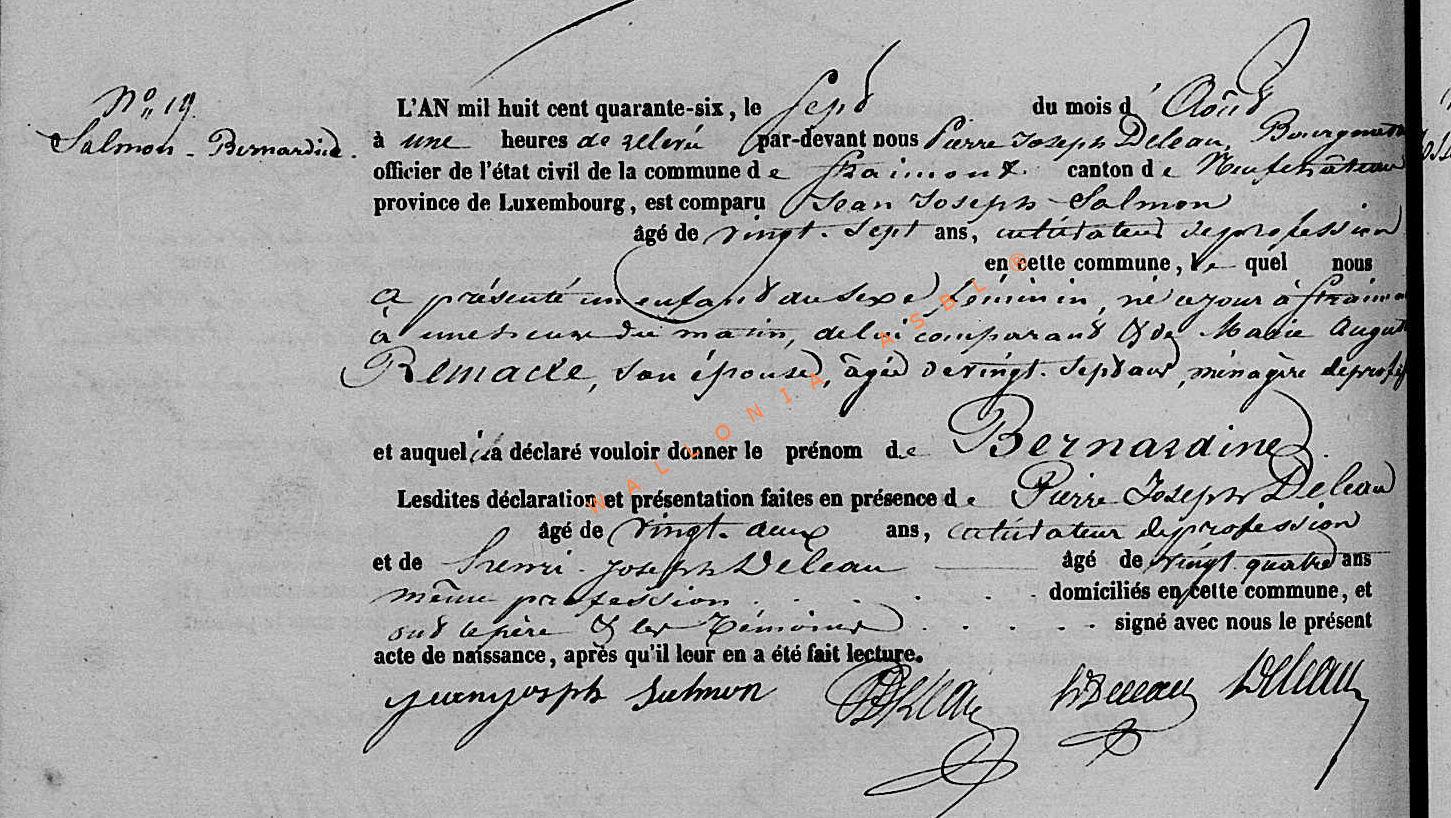 N° 19.
Salmon - Bernardine.
L'AN mil huit cent quarante-six, le sept du mois d'Août
à une heures de relevé par-devant nous Pierre Joseph Deleau, Bourgmestre
officier de l'état civil de la commune de Straimont. canton de Neufchâteau
province de Luxembourg, est comparu Jean Joseph Salmon
âgé de vingt-sept ans, cultivateur de profession
en cette commune, le quel nous
a présenté un enfant du sexe féminin, né ce jour à Straimont
à une heure du matin, de lui comparant & de Marie August
Remacle, son épouse, âgée de vingt-sept ans, ménagère de profes
et auquel il a déclaré vouloir donner le prénom de Bernardine.
Lesdites déclaration et présentation faites en présence de Pierre Joseph Deleau
âgé de vingt-deux ans, cultivateur de profession
et de Henri-Joseph Deleau âgé de vingt quatre ans
même profession domiciliés en cette commune, et
ont le père & les témoins signé avec nous le présent
acte de naissance, après qu'il leur en a été fait lecture.
Jean joseph Salmon PJDeleau hDeleau Deleau
WALLONIA ASBL ©